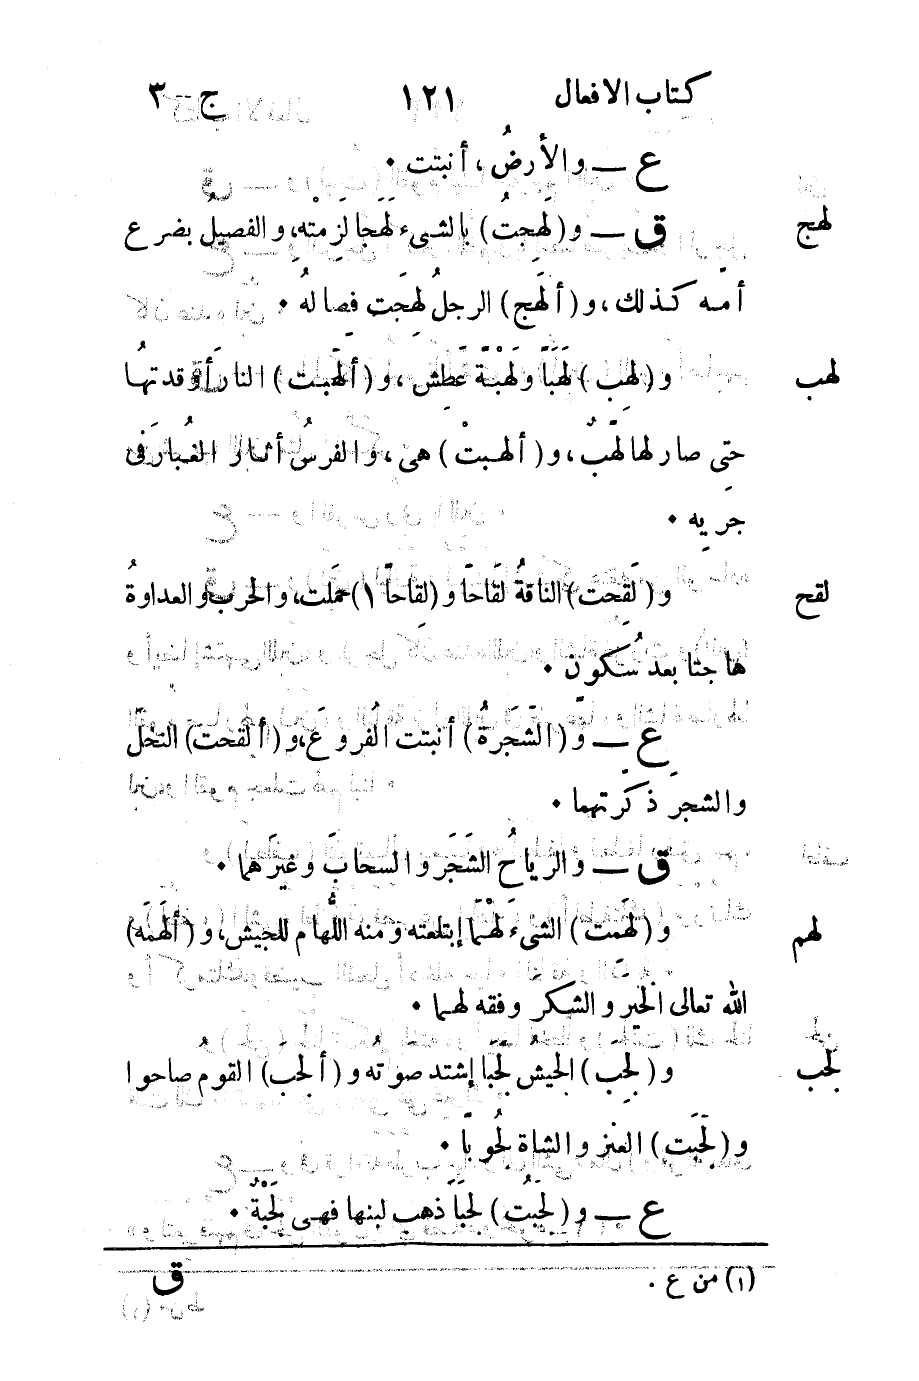 كتاب الافعال ١٢١ ج ـ ٣
ع — والأرضُ، أنبتت •
لهج ق — و (لَهِجتُ) بالشىء لَهَجا لَزِمْته، والفصيلُ بضرع
أمّه كذلك، و (ألهَج) الرجلُ لهِجَت فصالهُ •
لهب و (لهِب) لَهَباً ولَهْبَةً عَطِش، و (ألهَبت) النارَ أوقدتهُا
حتى صار لها لَهَبٌ، و (ألهبتْ) هى، والفرسُ أثار الغُبارَ فى
جريِه •
لقح و (لَقِحت) الناقةُ لَقَاحًا و (لِقاحاً ١) حمَلت، والحربُ والعداوةُ
هاجتا بعد سُكون •
ع — و (الشّجرَةُ) أنبتت الفُروعَ، و (ألقحت) النخل
والشجر ذكرتهما •
ق — والرياحُ الشجَرَ والسحابَ وغيرَهما •
لهم و (لَهِمت) الشىءَ لَهْمًا إبتلعته ومنه اللُّهام للجيش، و (ألهَمَه)
الله تعالى الخير والشكر وفقه لهما •
لجب و (لجِب) الجيش لجَبًا إشتد صوته و (ألجب) القوم صاحوا
و (لَجَبت) العنز والشاة لُجُوباً •
ع — و (لجَبُت) لجَباً ذهب لبنها فهى لَجْبَةٌ •
(١) من ع .
ق